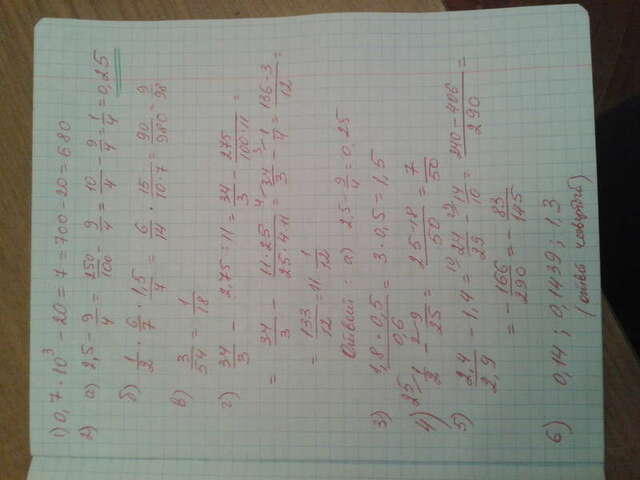 1) 0,7 · 10³ - 20 = 7 = 700 - 20 = 680
2) а) 2,5 - 9/4 = 250/100 - 9/4 = 10/4 - 9/4 = 1/4 = 0,25
б) 1/2 · 6/7 · 1,5/7 = 6/14 · 15/10·7 = 90/980 = 9/98
в) 3/54 = 1/18
г) 34/3 - 2,75 = 11 = 34/3 - 275/100·11 =
= 34/3 - 11·25/25·4·11 = 34/3 - 1/4 = 136-3/12 =
= 133/12 = 11 1/12
Ответ: а) 2,5 - 9/4 = 0,25
3) 1,8 · 0,5/0,6 = 3 · 0,5 = 1,5
4) 1/2 - 9/25 = 25-18/50 = 7/50
5) 2,4/2,9 - 1,4 = 24/29 - 14/10 = 240-406/290 =
= - 166/290 = - 83/145
6) 0,14 ; 0,1439 ; 1,3